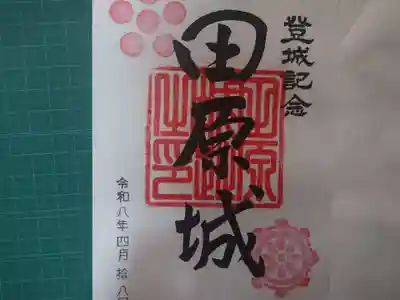 登城記念
田原城
令和八年四月拾八